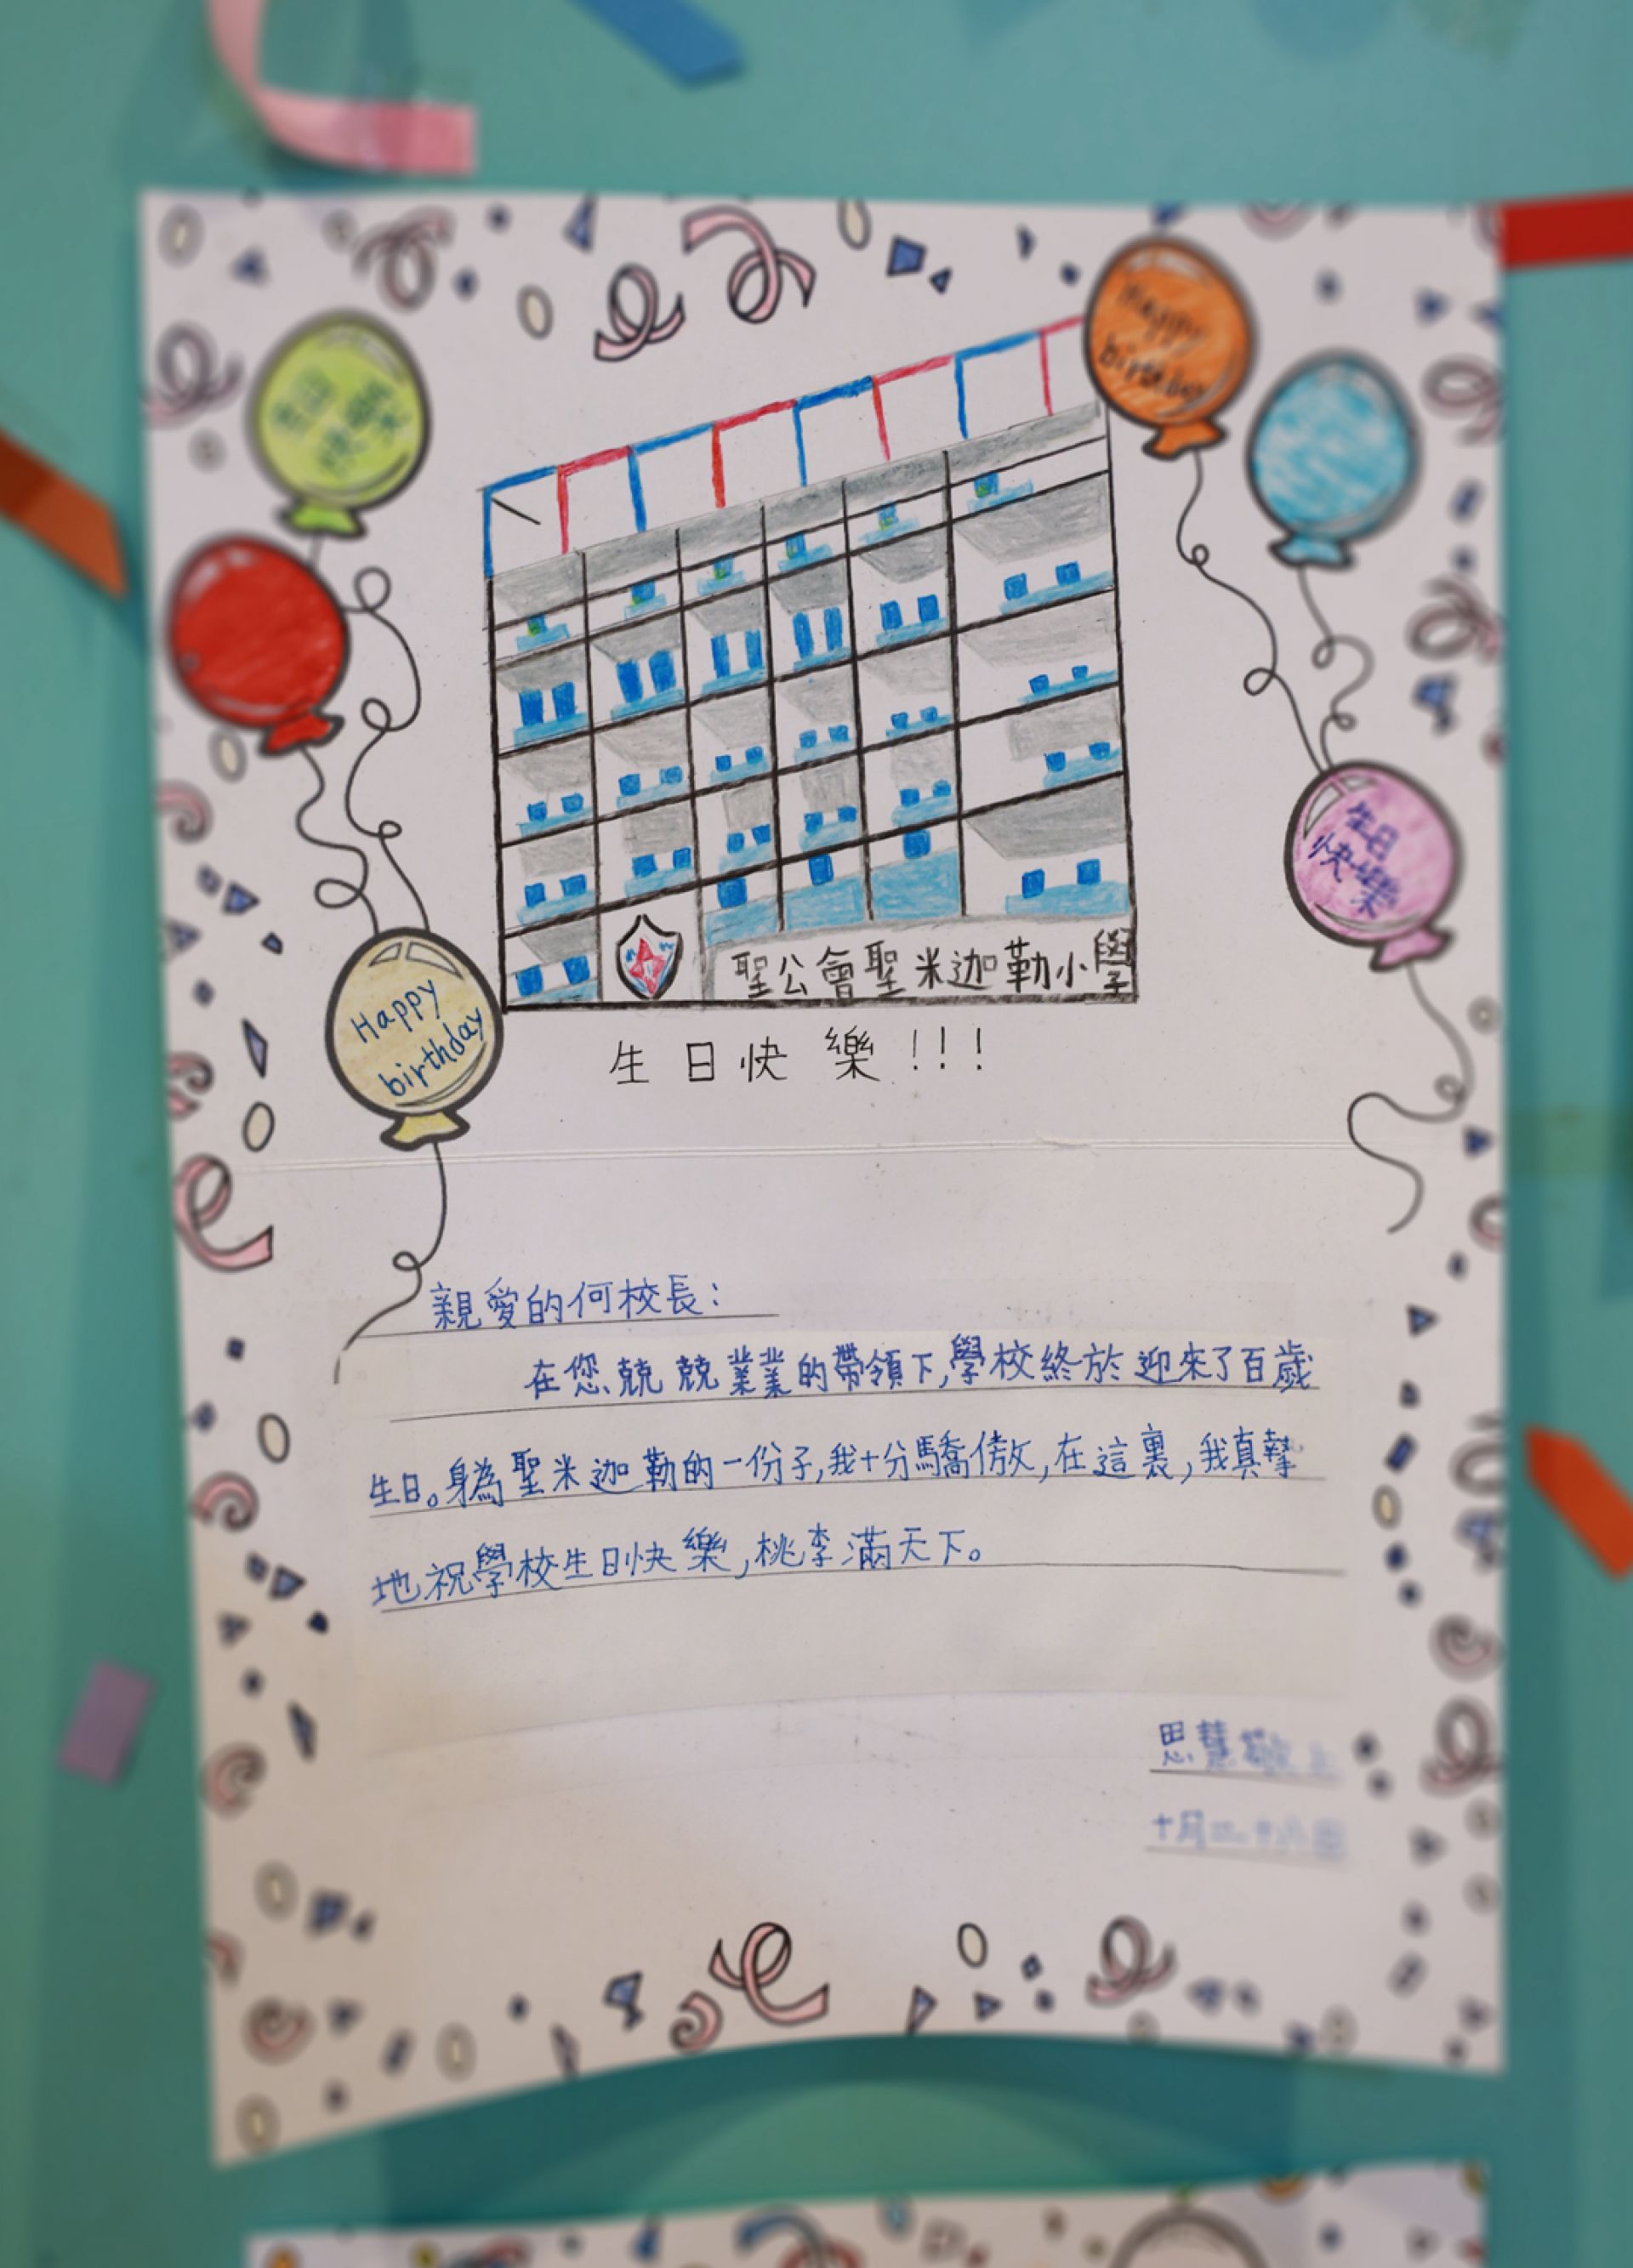 生日快樂
Happy
birthday
生日
快樂
Happy
birthday
聖公會聖米迦勒小學
生日快樂!!!
親愛的何校長:
在您兢兢業業的帶領下,學校終於迎來了百歲
生日。身為聖米迦勒的一份子,我十分驕傲,在這裏,我真摯
地祝學校生日快樂,桃李滿天下。
思慧敬上
十月二十